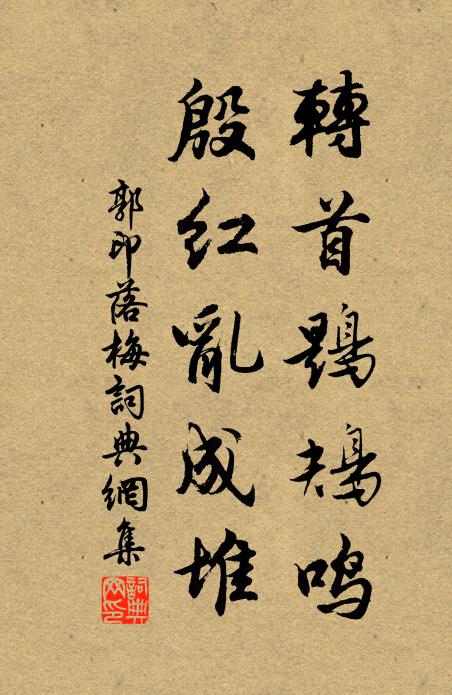 轉首鶗鴂鸣
殷红亂成堆
郭印落梅詞典網集
詞典网印